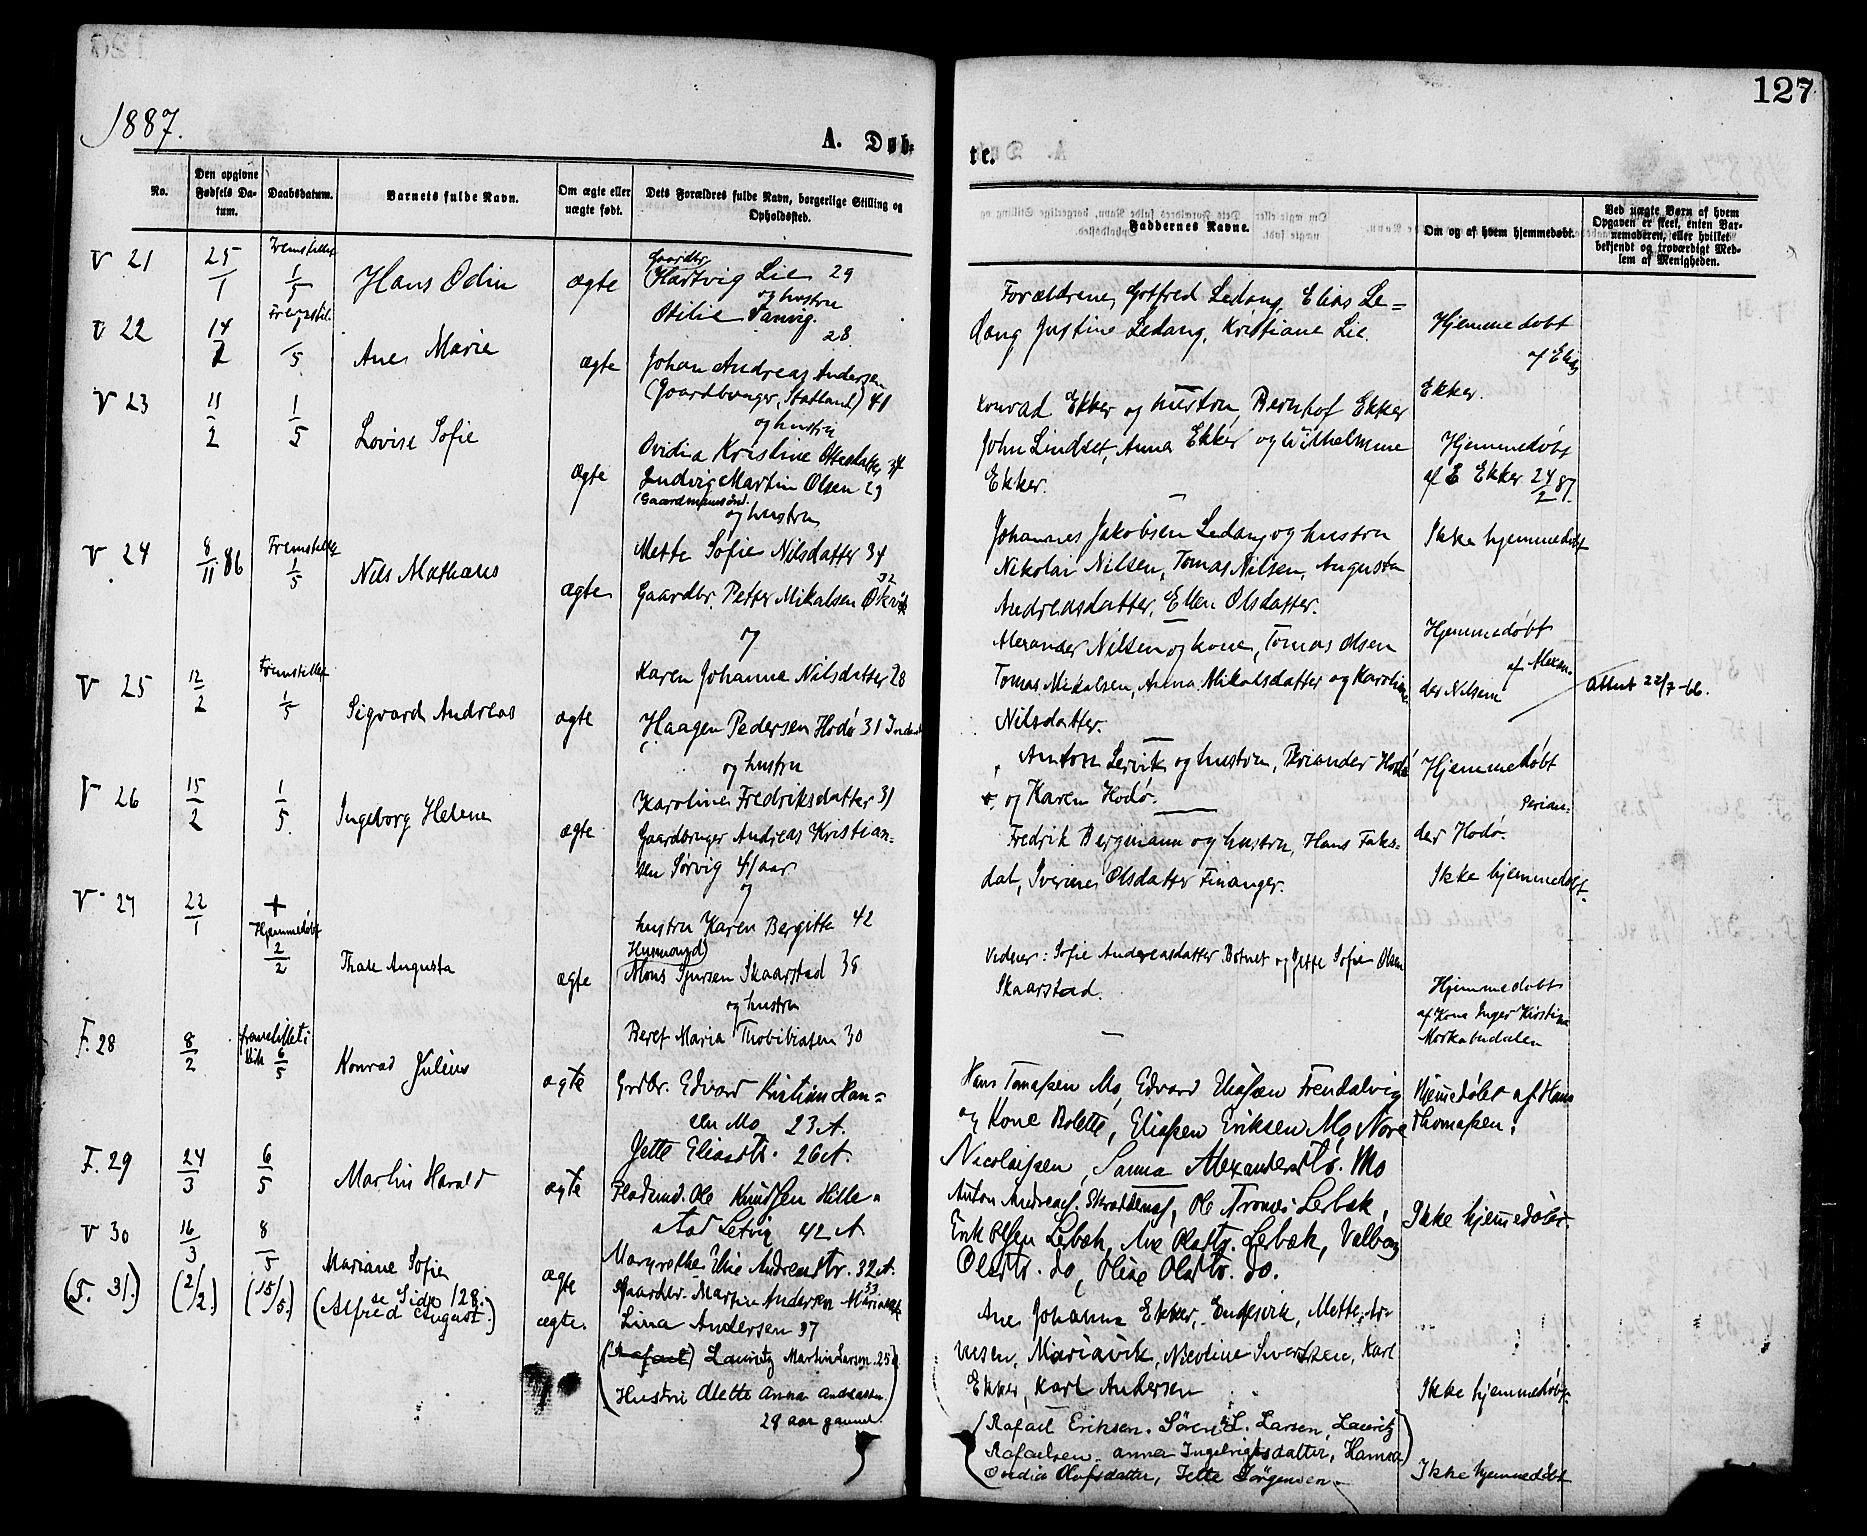 127
1887.
A. Døb-
te.
No.
Den opgivne Fødsels Da-
tum.
Daabsdatum.
Barnets fulde Navn.
Om ægte eller
uægte født.
Dets Forældres fulde Navn, borgerlige Stilling og
Opholdssted.
Faddernes Navne.
Om og af hvem hjemmedøbt.
Ved uægte Børn af hvem
Opgaven er skeet, enten Bar-
nemoderen, eller hvilket
bekjendt og troværdigt Med-
lem af Menigheden.
V 21
25/1
Fremstillet
1/5
Hans Odin
ægte
Gaardbr.
Hartvig Lie 29
og hustru
Otilie Tanvig.
28
Forældrene, Gotfred Ledang, Elias Le=
dang Justine Ledang, Kristiane Lie.
Hjemmedøbt
af
Ekker.
V 22
14/2
Fremstil.
1/5
Ane Marie
ægte
Johan Andreas Andersen
(Gaardbruger, Statland) 41
og hustru
Ovidia Kristine 34
Konrad Ekker og hustru, Bernhof Ekker
John Lindset, Anna Ekker og Vilhelmine
Ekker.
Hjemmedøbt
af E Ekker 24/2 87.
V 23
11/2
1/5
Lovise Sofie
ægte
Ludvig Martin Olsen 29
og hustru
Mette Sofie Nilsdatter 34
Johannes Jakobsen Ledang og hustru
Nikolai Nilsen, Tomas Nilsen, Augusta
Andreasdatter, Ellen Olsdatter.
Ikke hjemmedøbt
V 24
8/11 86
Fremstillet
1/5
Nils Mathæus
ægte
Gaardbr. Petter Mikalsen 32
og
Karen Johanna Nilsdatter 28
Alexander Nilsen og kone, Tomas Olsen
Tomas Mikalsen, Anna Mikalsdatter og Karoline
Nilsdatter.
Hjemmedøbt
af Alexan-
der Nilsen
Attest 22/7-66.
V 25
12/2
Fremstillet
1/5
Sigvard Andreas
ægte
Haagen Pedersen Hodø 31
og hustru
Karoline Fredriksdatter 31
Anton Lervik og hustru, Periander Hodø
og Karen Hodø.
Hjemmedøbt
Perian-
der Hodø.
V 26
15/2
1/5.
Ingeborg Helene
ægte
Gaardbruger Andreas Kristian-
sen Sørvig 41 aar
og
hustru Karen Bergitte 42
Fredrik Bergmann og hustru, Hans Faks-
dal, Iverine Olsdatter Finanger.
Ikke hjemmedøbt.
V 27
22/1
+
Hjemmedøbt
2/2
Thale Augusta
ægte
Husmand)
Mons Skaarstad 36
og hustru
Beret Maria 30
Vidner: Sofie Andreasdatter Botnet og Jette Sofie Olsen
Skaarstad.
Hjemmedøbt
af Kone Inger Kirstina
Morkabudalen
F. 28
8/2
fremstillet i
Kirk 6/5
Konrad Julius
ægte
Grdbr. Edvard Kristian Han=
sen Mo 23 A.
Jette Eliasdtr. 26 A.
Hans Tomassen Mo, Edvard Eliassen Frendalvig
og Kone Bolette, Eliassen Eriksen Mo, Nore
Nicolaissen, Sanna Alexandersdtr. Mo
Hjemedøbt af Hans
Thomassen.
F. 29
24/3
6/5
Martin Harald
ægte
Ole Knudsen Hille=
stad Setvig 42 A
Margrethe Elise Andreasdtr. 32 A.
Anton Andreass. , Ole Tronæs Lerbæk,
Erik Olsen Lerbæk, Ane Olasdtr. Lerbæk, Valborg
Olasdtr. do, Oline Olasdtr. do.
Ikke hjemedøbt
V 30
16/3
8/5
Mariane Sofie
ægte
Gaardbr. Martin Andersen 33
Lina Andersen 37
Ane Johanna Ekker, Engesvik, Mette Ar-
ntsen, Mariavik, Nicoline Sivertsen, Karl
Ekker, Karl Andersen
Ikke hjemmedøbt.
(F. 31.)
(2/2.)
(15/5.)
se Side 128.
(Alfred August.)
ægte.
(Rafael) Lauritz Martin Larsen 25
Hustru Mette Anna Andreasen
29 aar gammel.)
(Rafael Eriksen. Søren L. Larsen, Lauritz
Rafaelsen. Anna Ingebrigtsdatter, Hanna)
Ovedia Olufsdatter, Jette Jørgensen
Ikke hjemmedøbt